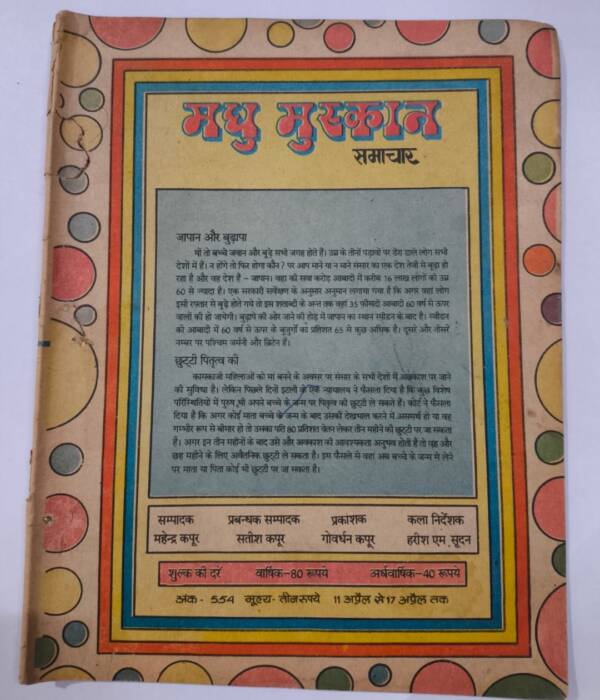 मधु मुस्कान
समाचार
जापान और बुढ़ापा
यों तो बच्चे जवान और बूढ़े सभी जगह होते हैं। उम्र के तीनों पड़ावों पर डेरा डाले लोग सभी
देशों में हैं। न होंगे तो फिर होगा कौन? पर आप मानें या न मानें संसार का एक देश तेजी से बूढ़ा हो
रहा है और वह देश है – जापान। वहां की सवा करोड़ आबादी में करीब 16 लाख लोगों की उम्र
60 से ज्यादा है। एक सरकारी सर्वेक्षण के अनुसार अनुमान लगाया गया है कि अगर वहां लोग
इसी रफ्तार से बूढ़े होते गये तो इस शताब्दी के अन्त तक वहां 35 फीसदी आबादी 60 वर्ष से ऊपर
वालों की हो जायेगी। बुढ़ापे की ओर जाने की होड़ में जापान का स्थान स्वीडन के बाद है। स्वीडन
की आबादी में 60 वर्ष से ऊपर के बुजुर्गों का प्रतिशत 65 से कुछ अधिक है। दूसरे और तीसरे
नम्बर पर पश्चिम जर्मनी और ब्रिटेन हैं।
छुट्टी पितृत्व की
कामकाजी महिलाओं को मां बनने के अवसर पर संसार के सभी देशों में अवकाश पर जाने
की सुविधा है। लेकिन पिछले दिनों इटली के एक न्यायालय ने फैसला दिया है कि कुछ विशेष
परिस्थितियों में पुरुष भी अपने बच्चे के जन्म पर पितृत्व की छुट्टी ले सकते हैं। कोर्ट ने फैसला
दिया है कि अगर कोई माता बच्चे के जन्म के बाद उसकी देखभाल करने में असमर्थ हो या वह
गम्भीर रूप से बीमार हो तो उसका पति 80 प्रतिशत वेतन लेकर तीन महीने की छुट्टी पर जा सकता
है। अगर इन तीन महीनों के बाद उसे और अवकाश की आवश्यकता अनुभव होती है तो वह और
छह महीने के लिए अवैतनिक छुट्टी ले सकता है। इस फैसले से वहां अब बच्चे के जन्म से लेने
पर माता या पिता कोई भी छुट्टी पर जा सकता है।
सम्पादक प्रबन्धक सम्पादक प्रकाशक कला निर्देशक
महेन्द्र कपूर सतीश कपूर गोवर्धन कपूर हरीश एम. सूदन
शुल्क की दरें वार्षिक–80 रूपये अर्धवार्षिक–40 रूपये
अंक - 554 मूल्य - तीन रुपये 11 अप्रैल से 17 अप्रैल तक